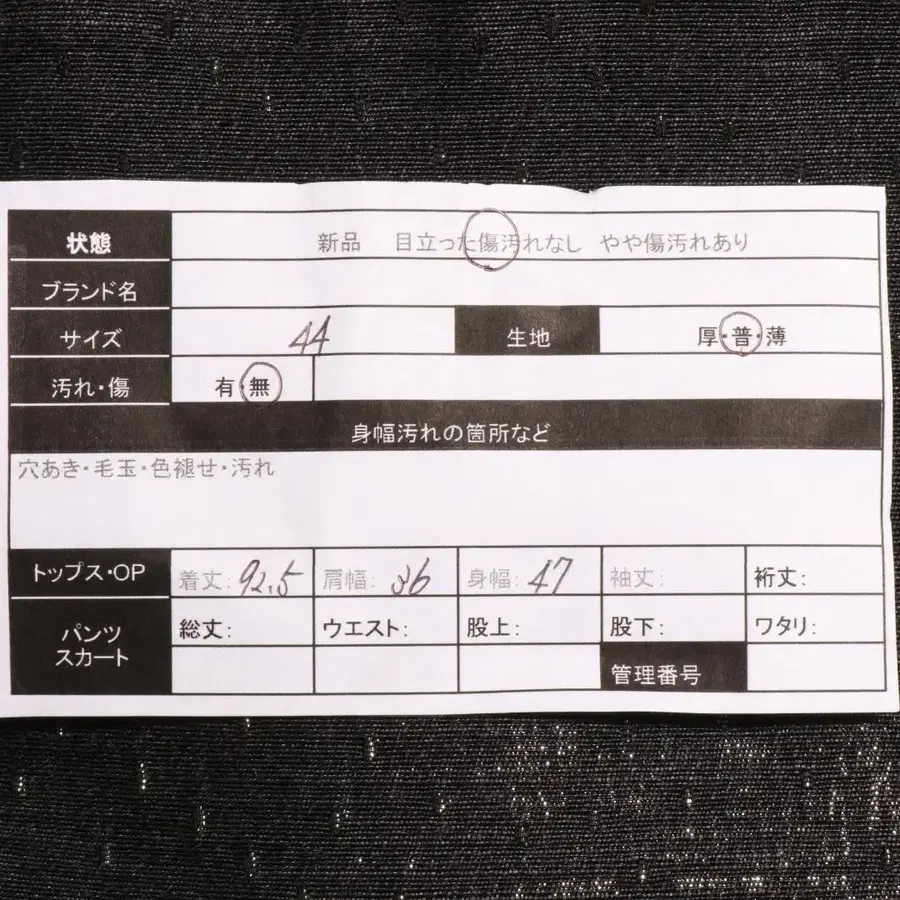 状態 新品 目立った傷汚れなし やや傷汚れあり
ブランド名
サイズ 44 生地 厚・普・薄
汚れ・傷 有・無
身幅汚れの箇所など
穴あき・毛玉・色褪せ・汚れ
トップス・OP 着丈: 92.5 肩幅: 36 身幅: 47 袖丈: 裄丈:
パンツ スカート 総丈: ウエスト: 股上: 股下: ワタリ:
管理番号